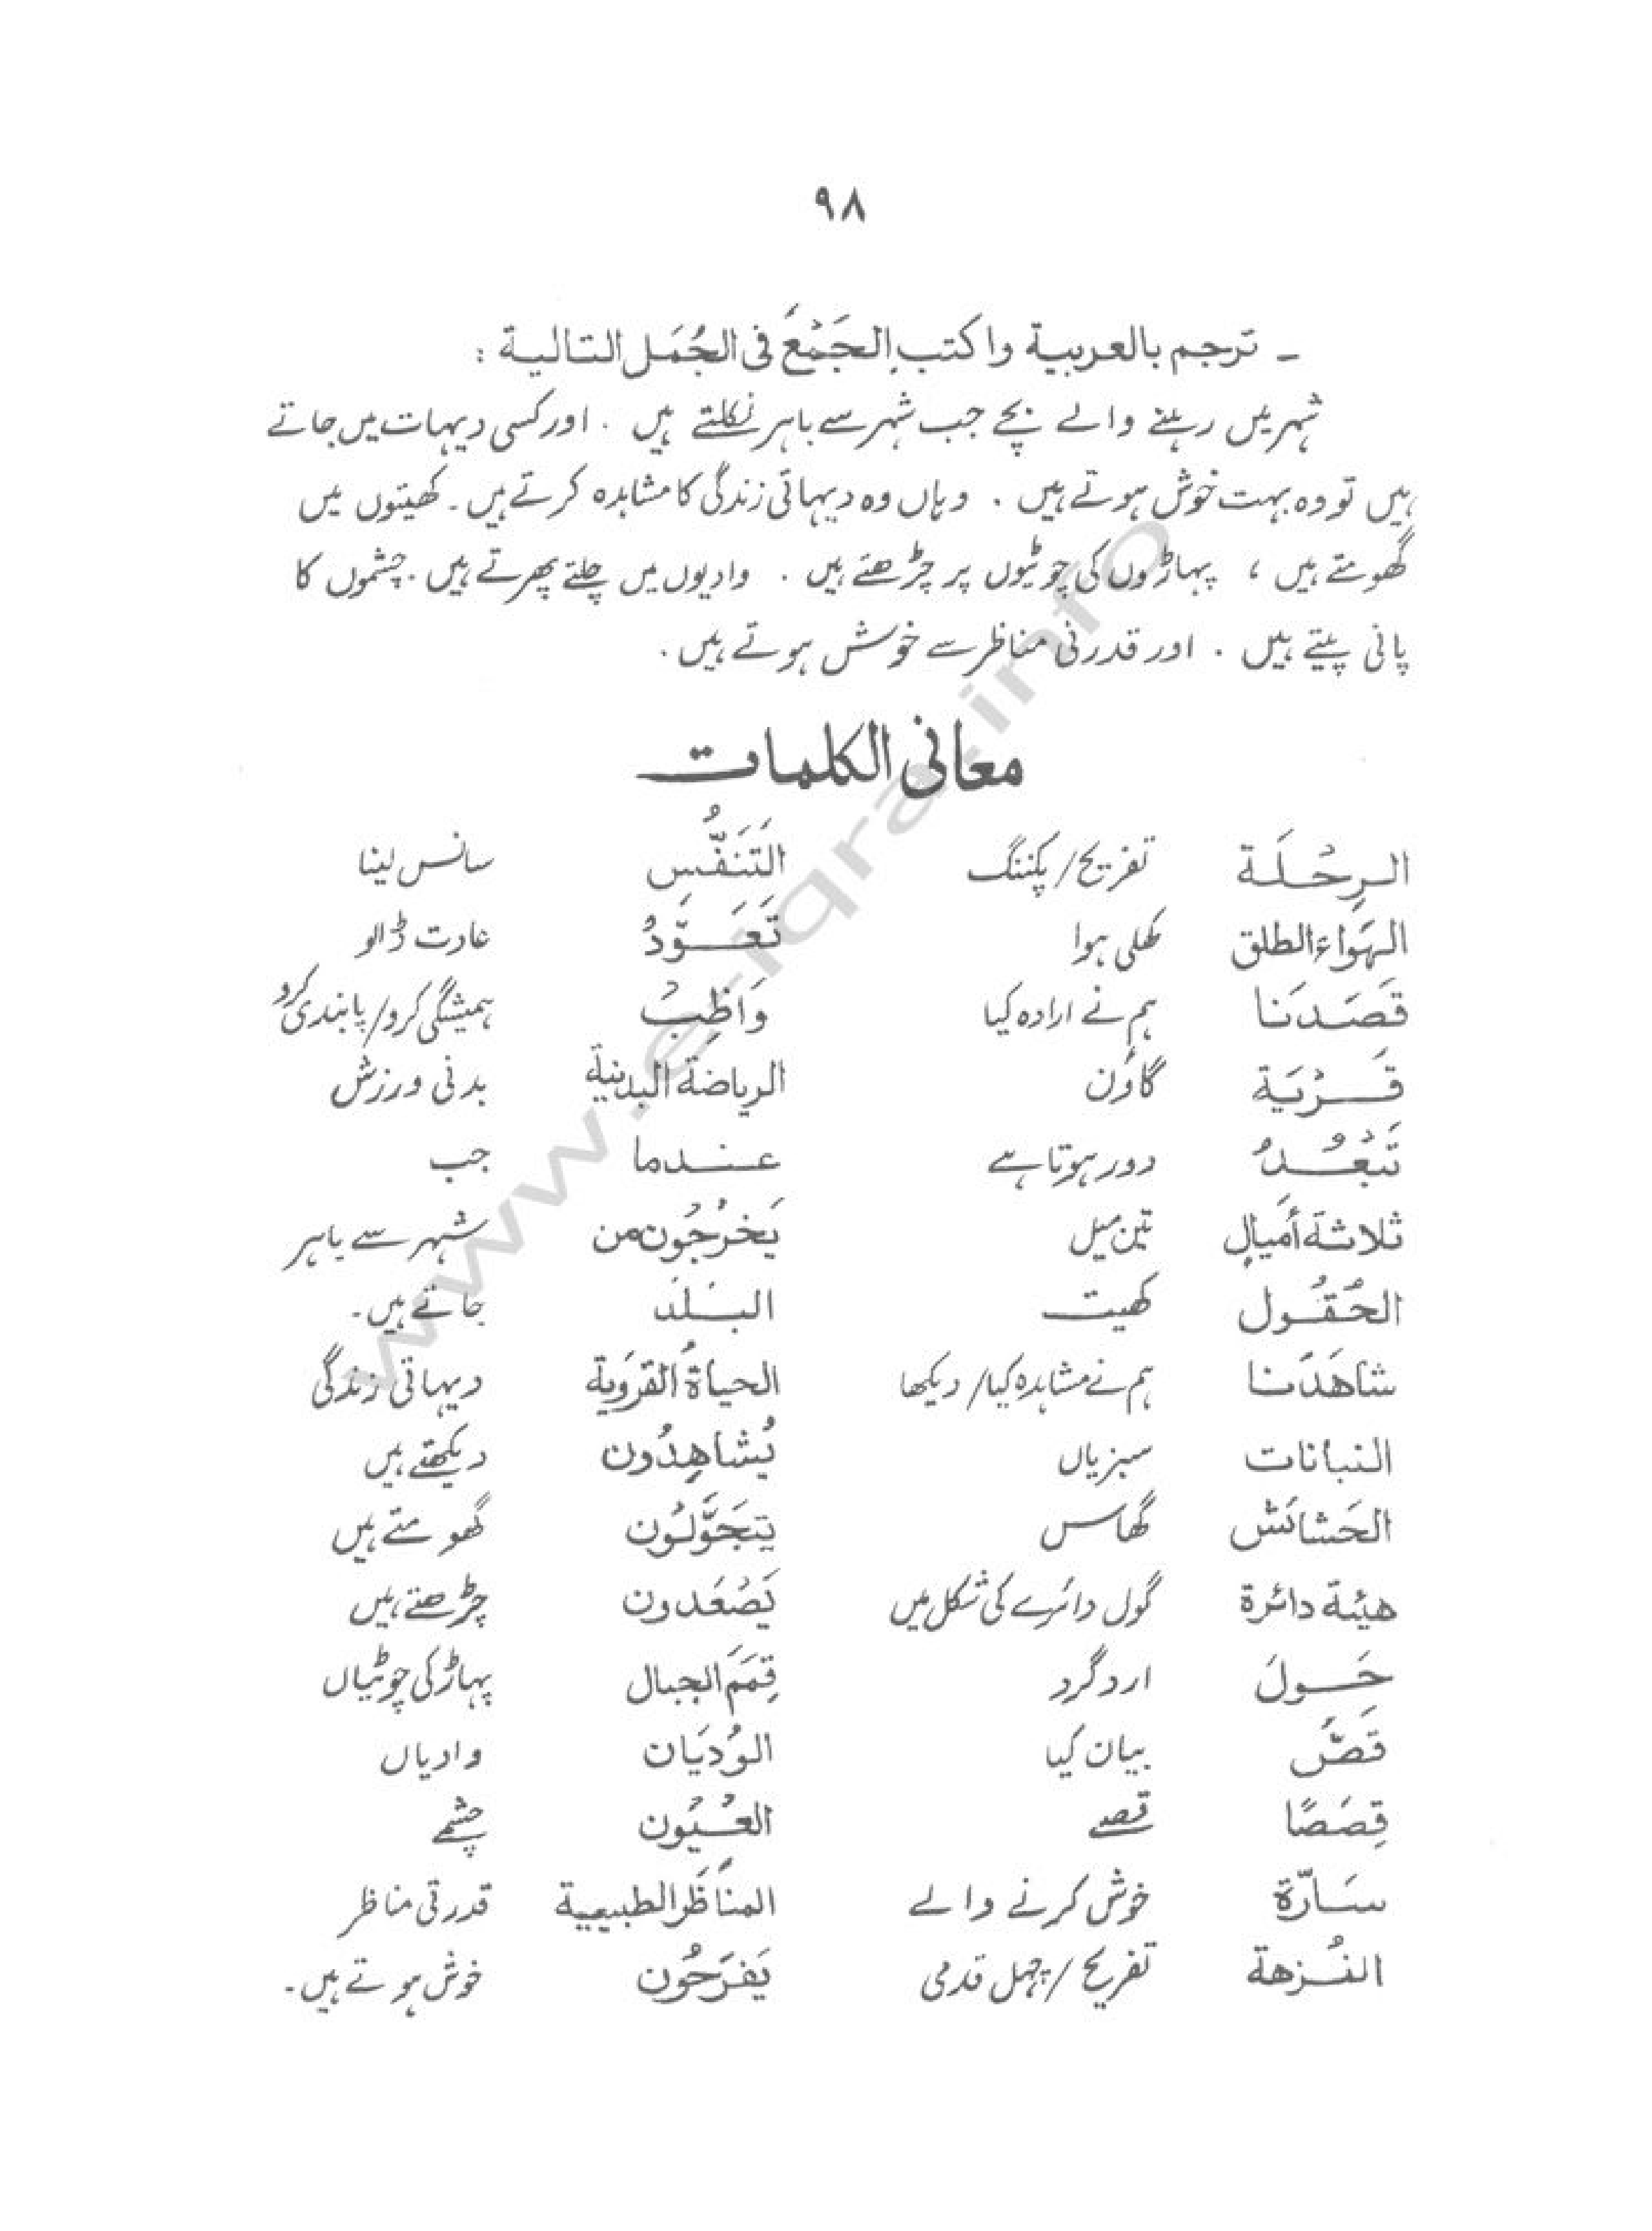 ٩٨
ـ ترجم بالعربية واكتب الجَمْعَ فى الجُمَل التالية :
شہر میں رہنے والے بچے جب شہر سے باہر نکلتے ہیں . اور کسی دیہات میں جاتے
ہیں تو وہ بہت خوش ہوتے ہیں . وہاں وہ دیہاتی زندگی کا مشاہدہ کرتے ہیں ۔ کھیتوں میں
گھومتے ہیں ، پہاڑوں کی چوٹیوں پر چڑھتے ہیں . وادیوں میں چلتے پھرتے ہیں . چشموں کا
پانی پیتے ہیں . اور قدرتی مناظر سے خوش ہوتے ہیں .
معانى الكلمات
الرِحْلَة تفریح/پکننگ التَنَفُّس سانس لینا
الهَواء الطلق کھلی ہوا تَعَوَّدْ عادت ڈالو
قَصَدنَا ہم نے ارادہ کیا وَاظِبْ ہمیشگی کرو/پابندی کرو
قَرْيَة گاؤن الرياضة البدنية بدنی ورزش
تَبْعُدُ دور ہوتا ہے عندما جب
ثلاثة أميالٍ تین میل يَخْرُجُون من شہر سے باہر
الحُقُول کھیت البَلَد جاتے ہیں۔
شاهَدنا ہم نے مشاہدہ کیا/دیکھا الحياةُ القَرَوية دیہاتی زندگی
النباتات سبزیاں يُشاهِدُون دیکھتے ہیں
الحَشائش گھاس يتَجَوَّلُون گھومتے ہیں
هيئة دائرة گول دائرے کی شکل میں يَصْعَدون چڑھتے ہیں
حَولَ اردگرد قِمَمَ الجبال پہاڑ کی چوٹیاں
قَصَّ بیان کیا الوُديَان وادیاں
قِصَصًا قصے العُيُون چشمے
سَارّة خوش کرنے والے المناظَر الطبيعية قدرتی مناظر
النُزهة تفریح/چہل قدمی يَفرَحُون خوش ہوتے ہیں۔
www.e-iqra.info